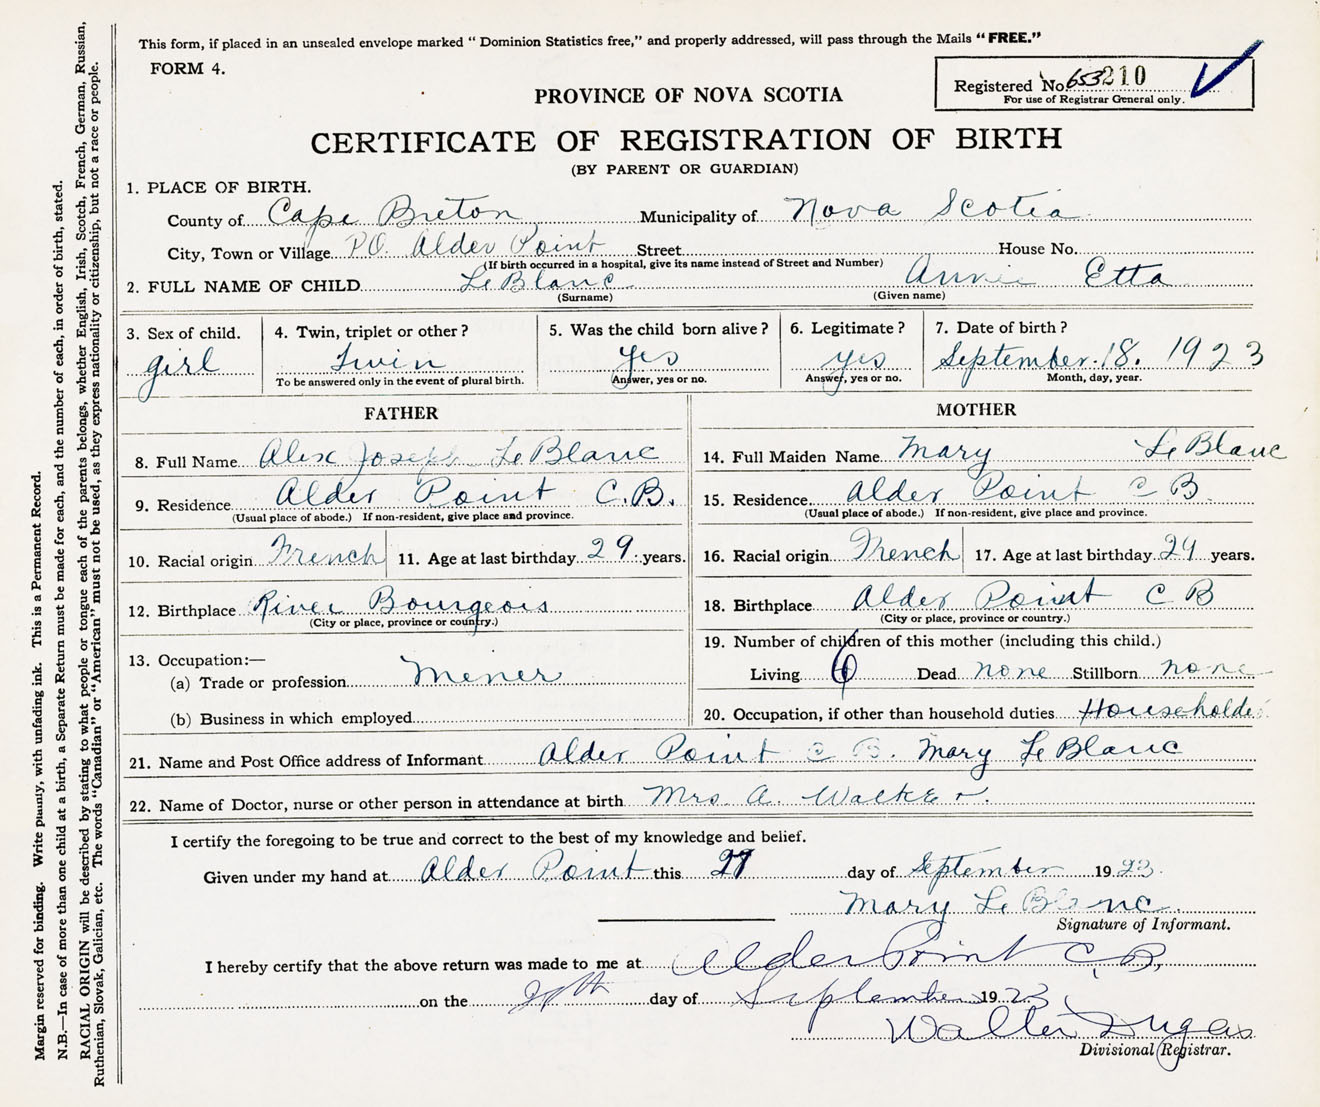 This form, if placed in an unsealed envelope marked “ Dominion Statistics free,” and properly addressed, will pass through the Mails “ FREE.”
FORM 4.
Registered No. 653210
For use of Registrar General only.
PROVINCE OF NOVA SCOTIA
CERTIFICATE OF REGISTRATION OF BIRTH
(BY PARENT OR GUARDIAN)
1. PLACE OF BIRTH.
County of Cape Breton Municipality of Nova Scotia
City, Town or Village P.O. Alder Point Street House No.
(If birth occurred in a hospital, give its name instead of Street and Number)
2. FULL NAME OF CHILD LeBlanc Annie Etta
(Surname) (Given name)
3. Sex of child. 4. Twin, triplet or other ? 5. Was the child born alive ? 6. Legitimate ? 7. Date of birth ?
girl Twin yes yes September. 18. 1923
To be answered only in the event of plural birth. Answer, yes or no. Answer, yes or no. Month, day, year.
FATHER
8. Full Name Alex Joseph LeBlanc
9. Residence Alder Point C.B.
(Usual place of abode.) If non-resident, give place and province.
10. Racial origin French 11. Age at last birthday 29 years.
12. Birthplace River Bourgeois
(City or place, province or country.)
13. Occupation:—
(a) Trade or profession Mener
(b) Business in which employed
MOTHER
14. Full Maiden Name Mary LeBlanc
15. Residence Alder Point C B
(Usual place of abode.) If non-resident, give place and province.
16. Racial origin French 17. Age at last birthday 29 years.
18. Birthplace Alder Point C B
(City or place, province or country.)
19. Number of children of this mother (including this child.)
Living 6 Dead none Stillborn none
20. Occupation, if other than household duties Householde
21. Name and Post Office address of Informant Alder Point C B. Mary LeBlanc
22. Name of Doctor, nurse or other person in attendance at birth Mrs A. Walker.
I certify the foregoing to be true and correct to the best of my knowledge and belief.
Given under my hand at Alder Point this day of September 1923.
Mary LeBlanc.
Signature of Informant.
I hereby certify that the above return was made to me at Alder Point C.B,
on the day of September 1923
Walter Dugas
Divisional Registrar.
Margin reserved for binding. Write plainly, with unfading ink. This is a Permanent Record.
N.B.—In case of more than one child at a birth, a Separate Return must be made for each, and the number of each, in order of birth, stated.
RACIAL ORIGIN will be described by stating to what people or tongue each of the parents belongs, whether English, Irish, Scotch, French, German, Russian,
Ruthenian, Slovak, Galician, etc. The words “Canadian” or “American” must not be used, as they express nationality or citizenship, but not a race or people.